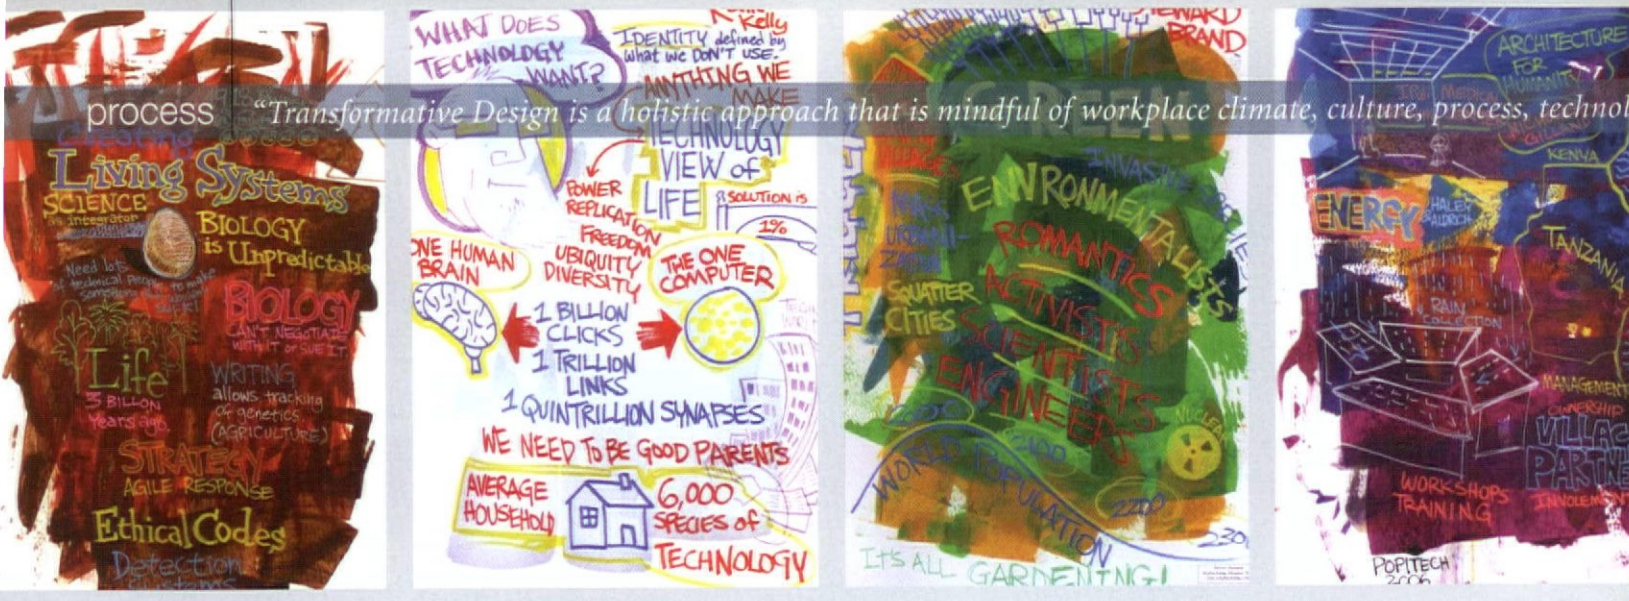 process
“Transformative Design is a holistic approach that is mindful of workplace climate, culture, process, technol
Creating
Living Systems
SCIENCE
as integrator
BIOLOGY
is Unpredictable
Need lots
of technical people to make
BIOLOGY
CAN'T NEGOTIATE
WITH IT or SUE IT
Life
3 BILLON
Years ago
WRITING
allows tracking
of genetics
(AGRICULTURE)
STRATEGY
AGILE RESPONSE
Ethical Codes
Detection
Systems
WHAT DOES
TECHNOLOGY
WANT?
Kelly
IDENTITY defined by
what we DON'T USE.
ANYTHING WE
MAKE
TECHNOLOGY
VIEW of
LIFE
SOLUTION is
1%
POWER
REPLICATION
FREEDOM
UBIQUITY
DIVERSITY
ONE HUMAN
BRAIN
THE ONE
COMPUTER
1 BILLION
CLICKS
1 TRILLION
LINKS
1 QUINTRILLION SYNAPSES
WE NEED TO BE GOOD PARENTS
AVERAGE
HOUSEHOLD
6,000
SPECIES of
TECHNOLOGY
STEWARD
BRAND
GREEN
VILLAGE
ENVIRONMENTALISTS
ROMANTICS
ACTIVISTS
SCIENTISTS
ENGINEERS
SQUATTER
CITIES
NUCLEAR
WORLD POPULATION
2100
2200
230
IT'S ALL GARDENING!
ARCHITECTURE
FOR
HUMANITY
KENYA
ENERGY
HALEY
ALDRICH
TANZANIA
RAIN
COLLECTION
MANAGEMENT
OWNERSHIP
VILLAG
PARTNE
INVOLEMEN
WORKSHOPS
TRAINING
POP!TECH
2006